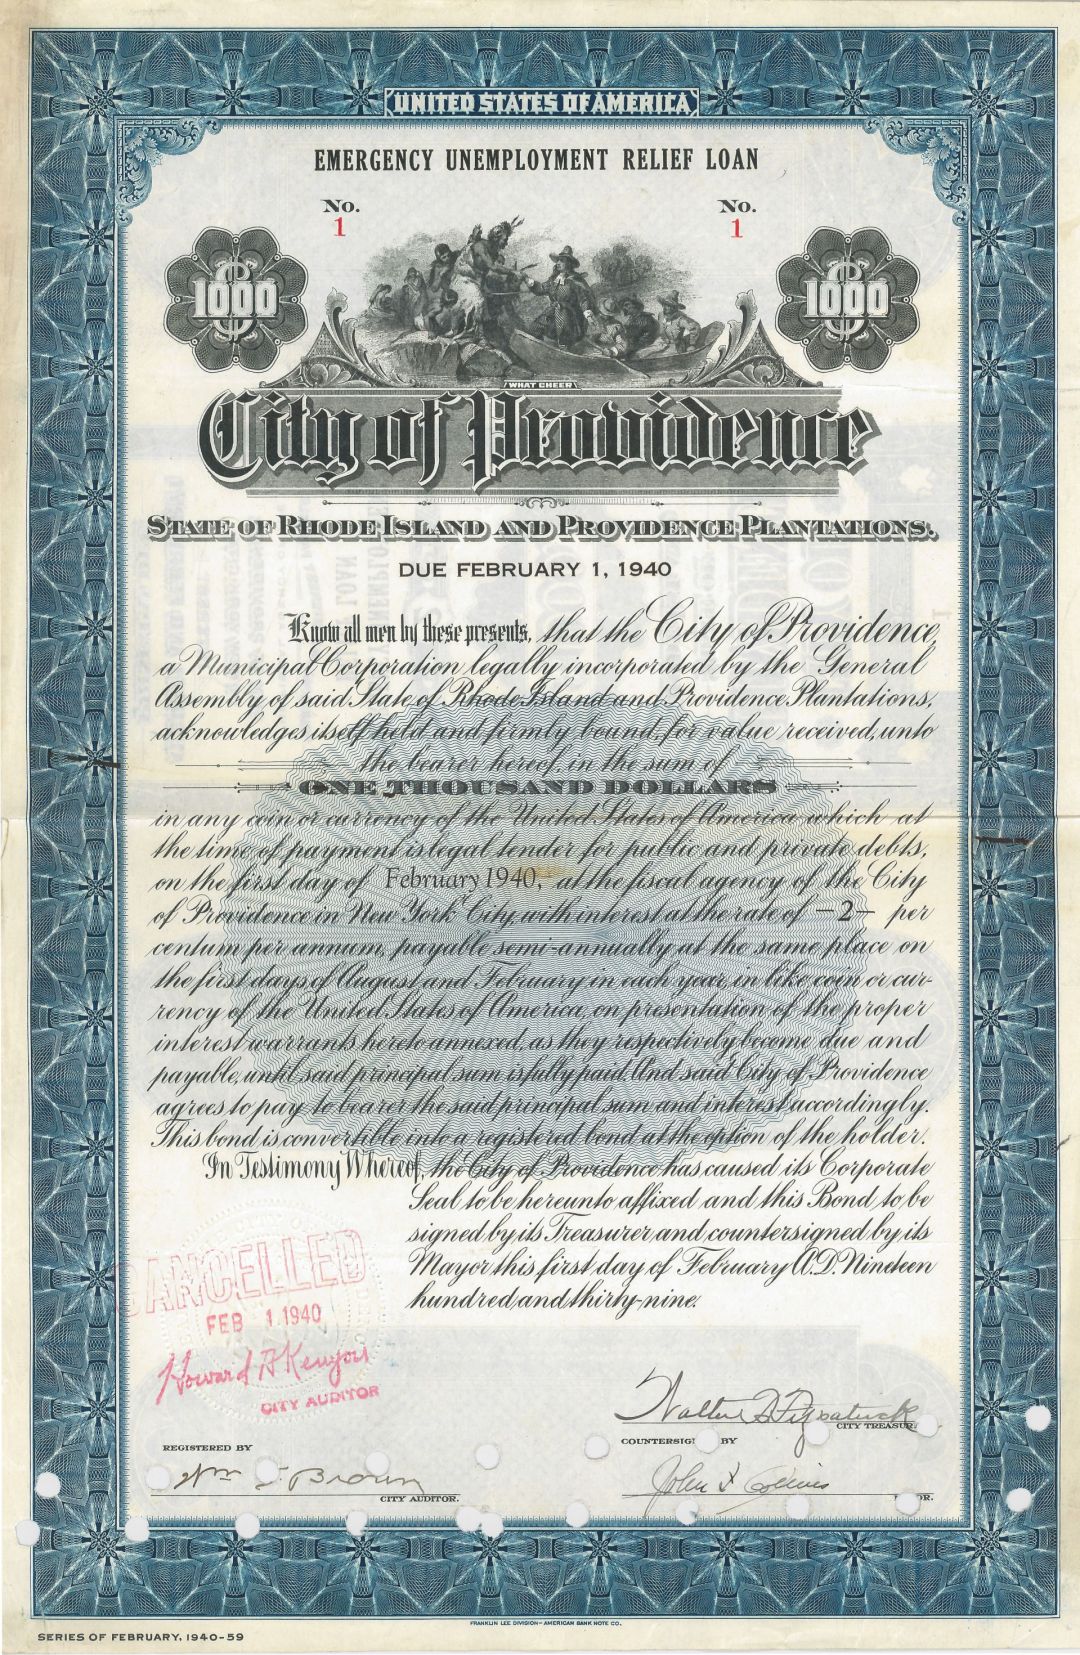 UNITED STATES OF AMERICA
EMERGENCY UNEMPLOYMENT RELIEF LOAN
No. No.
1 1
$1000 $1000
WHAT CHEER
City of Providence
STATE OF RHODE ISLAND AND PROVIDENCE PLANTATIONS.
DUE FEBRUARY 1, 1940
Know all men by these presents, that the City of Providence,
a Municipal Corporation legally incorporated by the General
Assembly of said State of Rhode Island and Providence Plantations,
acknowledges itself held and firmly bound, for value received, unto
the bearer hereof, in the sum of
ONE THOUSAND DOLLARS
in any coin or currency of the United States of America which at
the time of payment is legal tender for public and private debts,
on the first day of February 1940, at the fiscal agency of the City
of Providence in New York City, with interest at the rate of —2— per
centum per annum, payable semi-annually at the same place on
the first days of August and February in each year, in like coin or cur-
rency of the United States of America, on presentation of the proper
interest warrants hereto annexed, as they respectively become due and
payable, until said principal sum is fully paid. And said City of Providence
agrees to pay to bearer the said principal sum and interest accordingly.
This bond is convertible into a registered bond at the option of the holder.
In Testimony Whereof, the City of Providence has caused its Corporate
Seal to be hereunto affixed and this Bond to be
signed by its Treasurer and countersigned by its
Mayor this first day of February A.D. Nineteen
hundred and thirty-nine.
CANCELLED
FEB 1 1940
Howard A Kenyon
CITY AUDITOR
Walter F Fitzpatrick
CITY TREASUR
REGISTERED BY COUNTERSIG BY
Wm F. Brown John F Collins
CITY AUDITOR. OR.
FRANKLIN LEE DIVISION - AMERICAN BANK NOTE CO.
SERIES OF FEBRUARY, 1940-59